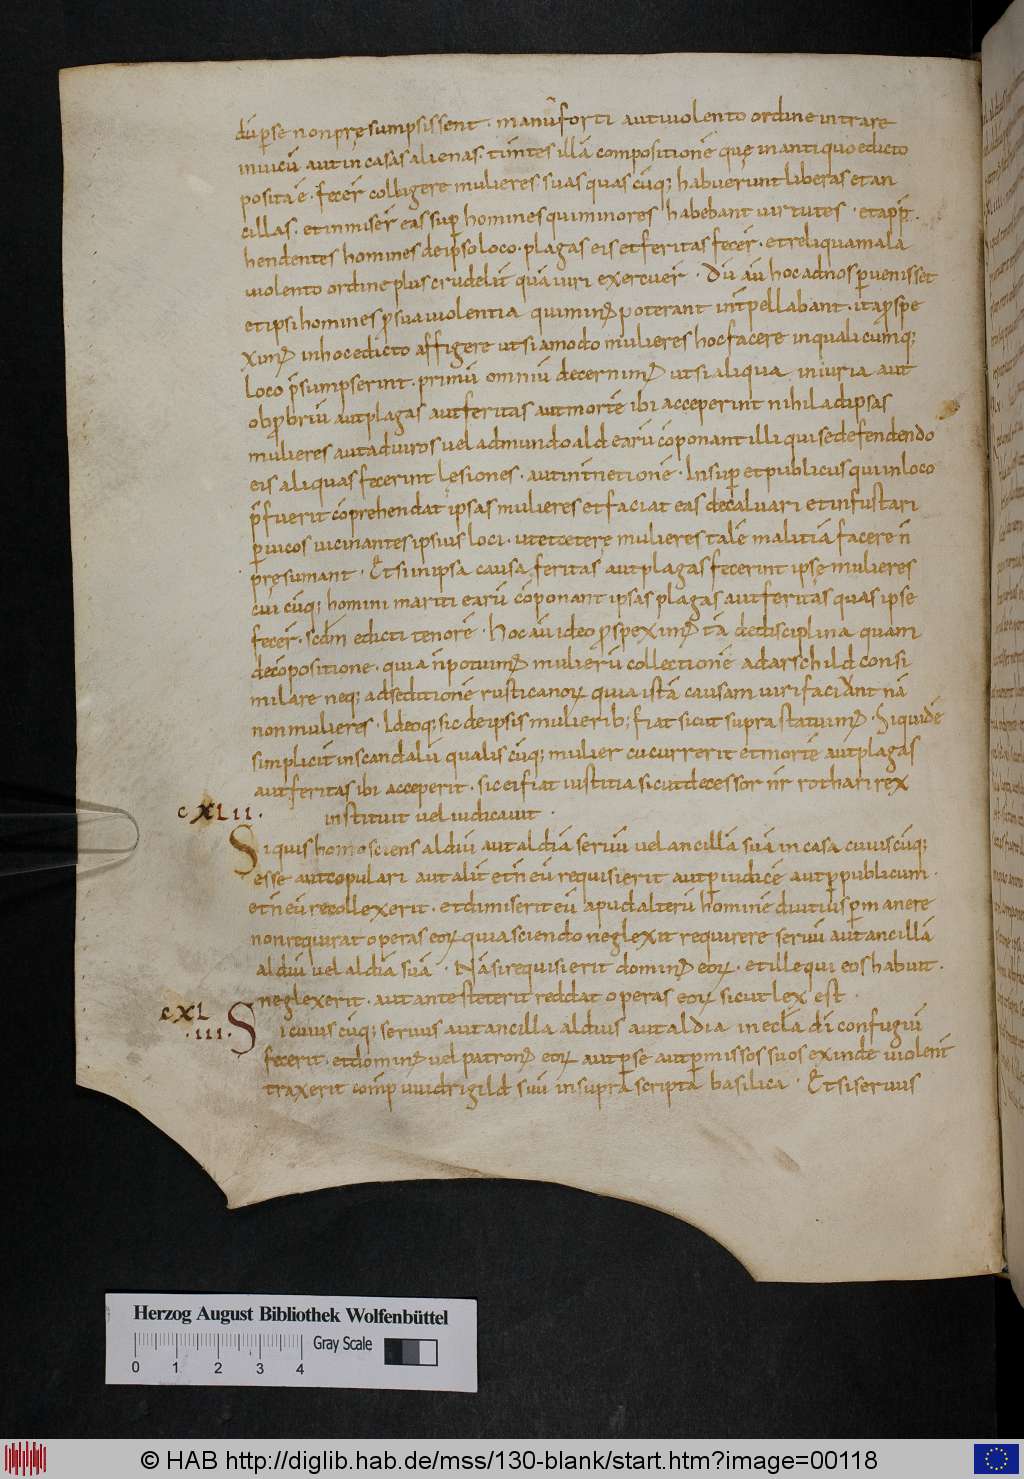 dū per se non pręsumpsissent · manū forti aut uiolento ordine intrare
in uicū aut in casas alienas. timtes illā compositionē quę in antiquo edicto
posita ē · fecer̄ colligere mulieres suas quas cūq; habuerunt liberas et an
cillas. et inmiser̄ eas sup̄ homines qui minores habebant uirtutes · et app̄
hendentes homines de ipso loco · plagas eis et feritas fecer̄ · et reliqua mala
uiolento ordine plus crudelit̄ quā uiri exercuer̄ · Dū aū hoc ad nos p̄uenisset
et ipsi homines p̄ sua uiolentia qui min; poterant int̄pellabant · ita p̄spe
xim; in hoc edicto affigere ut si amodo mulieres hoc facere in qualicumq;
loco p̄sumpserint · primū omniū decernim; ut si aliqua iniuria aut
obp̄briū aut plagas aut feritas aut mortē ibi acceperint nihil ad ipsas
mulieres aut ad uiros uel ad mundoald earū cōponant illi qui se defendendo
eis aliquas fecerint lesiones · aut int̄netionē · Insup̄ et publicus qui in loco
p̄fuerit cōprehendat ipsas mulieres et faciat eas decaluari et in fustari
p̄ uicos uicinantes ipsius loci · ut et ceterę mulieres talē malitiā facere n̄
presumant · Et si in ipsa causa feritas aut plagas fecerint ipsę mulieres
cui cūq; homini mariti earū cōponant ipsas plagas aut feritas quas ipse
fecer̄ · scdm̄ edicti tenorē · Hoc aū ideo p̄spexim; tā de disciplina quam
de cōpositione · quia n̄ potuim; mulierū collectionē ad arschild consi
milare neq; ad seditionē rusticanorū quia istā causam uiri faciunt nā
non mulieres · Ideoq; sic de ipsis mulierib; fiat sicut supra statuim; · Siquidē
simplicit̄ in scandalū qualis cūq; mulier cucurrerit et mortē aut plagas
aut feritas ibi acceperit · sic ei fiat iustitia sicut decessor nr̄ rothari rex
cXLII. instituit uel iudicauit ·
Siquis homo sciens aldiū aut aldiā seruū uel ancillā suā in casa cuiuscūq;
esse aut copulari aut alit̄ et n̄ eū requisierit aut p̄ iudicē aut p̄ publicum ·
et n̄ eū recollexerit · et dimiserit eū apud alterū hominē diutius p̄manere
non requirat operas eorū quia sciendo neglexit requirere seruū aut ancillā
aldiū uel aldiā suā · Nā si requisierit domin; eorū · et ille qui eos habuit ·
neglexerit · aut ante steterit reddat operas eorū sicut lex est ·
cXL
·III· Si cuius cūq; seruus aut ancilla aldius aut aldia in eclā dī confugiū
fecerit · et domin; uel patron; eorū aut p̄ se aut p̄ missos suos exinde uiolent̄
traxerit comp uuidrigild suū in suprascripta basilica · Et si seruus
Herzog August Bibliothek Wolfenbüttel
Gray Scale
0 1 2 3 4
© HAB http://diglib.hab.de/mss/130-blank/start.htm?image=00118